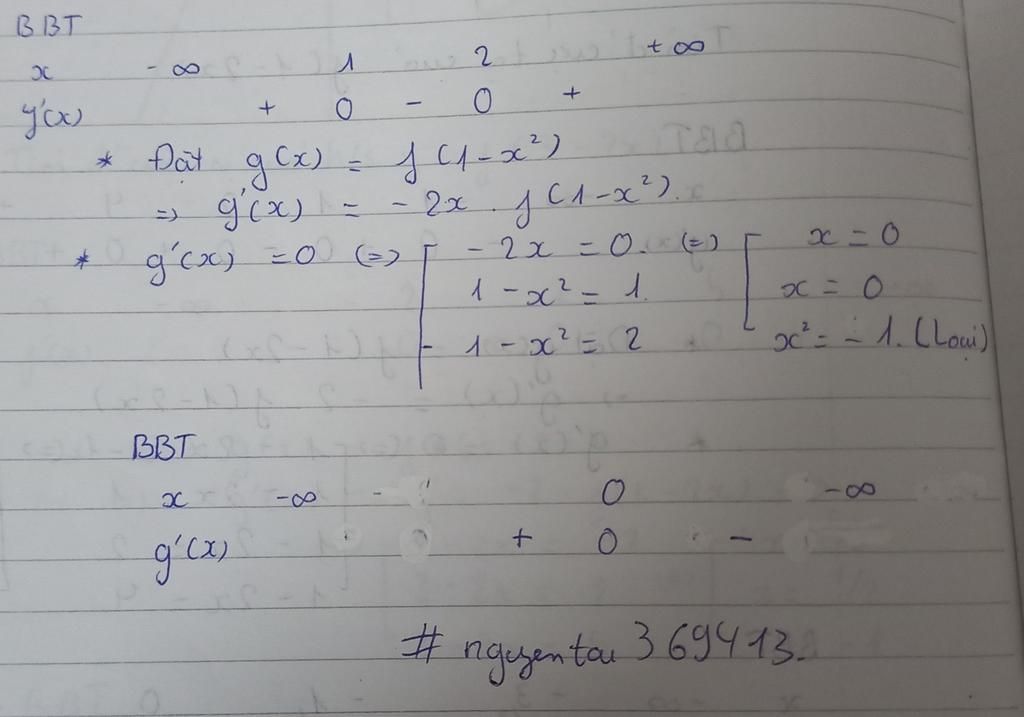 BBT
x -∞ 1 2 +∞
y'(x) + 0 - 0 +
* Đặt g(x) = f(1-x²)
=> g'(x) = -2x . f(1-x²).
* g'(x) = 0 (=) [ -2x = 0. (=) [ x = 0
1-x² = 1. x = 0
1-x² = 2 x² = -1. (Loại)
BBT
x -∞ 0 -∞
g'(x) + 0 -
# nguyentai369413.